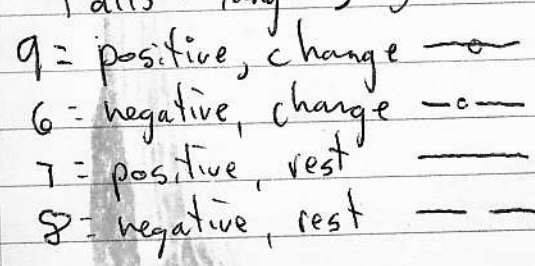 9 = positive, change
6 = negative, change
7 = positive, rest
8 = negative, rest